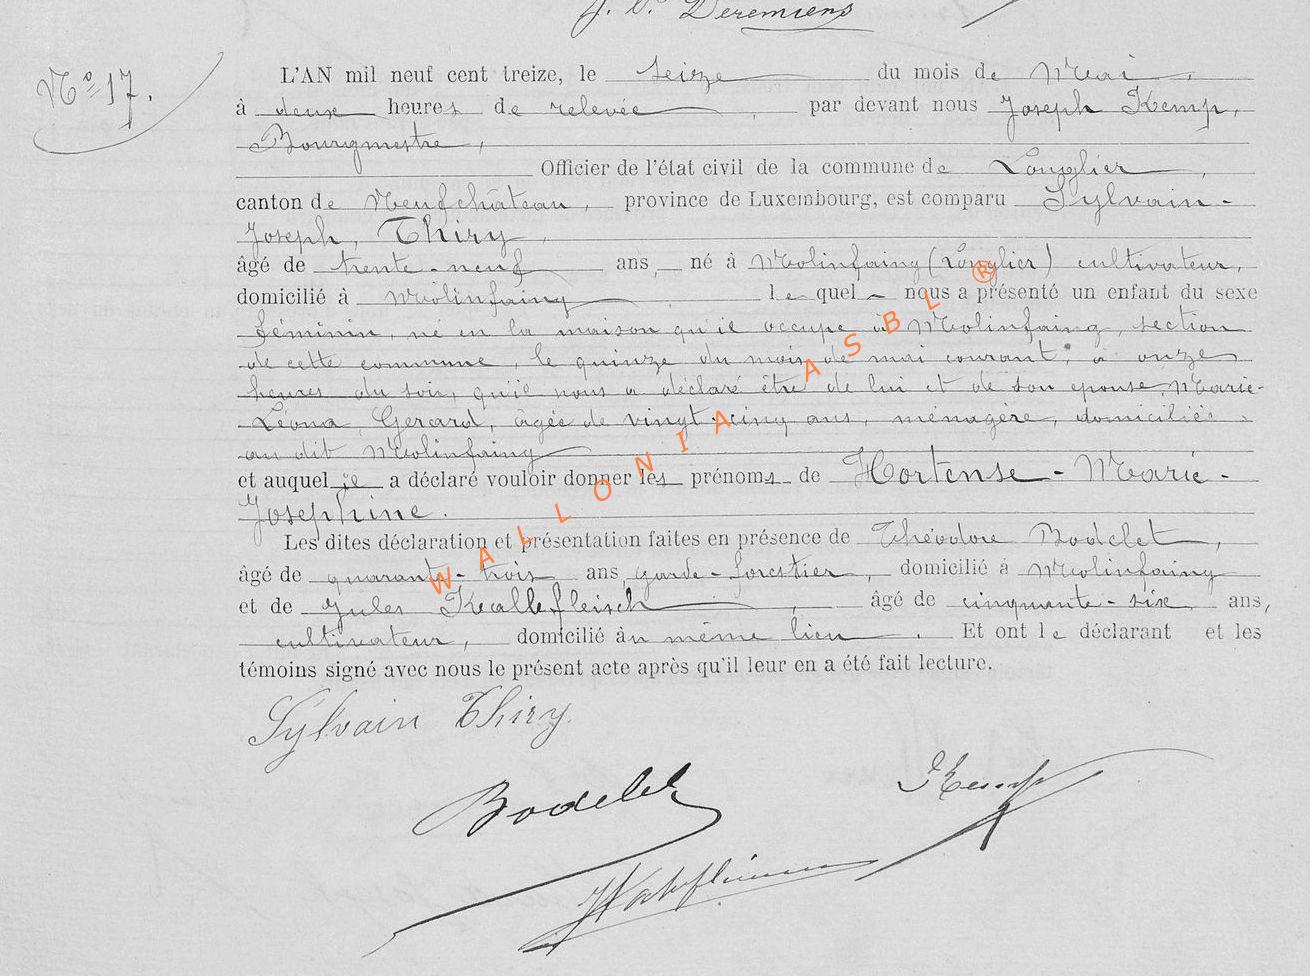 J. Bte Deremiens
N° 17. L'AN mil neuf cent treize, le seize du mois de Mai,
à deux heures de relevée, par devant nous Joseph Kemp,
Bourgmestre,
Officier de l'état civil de la commune de Longlier,
canton de Neufchâteau, province de Luxembourg, est comparu Sylvain-
Joseph, Thiry,
âgé de trente-neuf ans, né à Molinfaing (Longlier) cultivateur,
domicilié à Molinfaing, lequel nous a présenté un enfant du sexe
féminin, né en la maison qu'il occupe à Molinfaing, section
de cette commune, le quinze du mois de mai courant, à onze
heures du soir, qu'il nous a déclaré être de lui et de son epouse, Marie-
Léona, Gerard, âgée de vingt-cinq ans, ménagère, domiciliée
au dit Molinfaing
et auquel il a déclaré vouloir donner les prénoms de Hortense-Marie-
Joséphine.
Les dites déclaration et présentation faites en présence de Théodore Bodelet,
âgé de quarante-trois ans, garde-forestier, domicilié à Molinfaing
et de Jules Kalbfleisch, âgé de cinquante-six ans,
cultivateur, domicilié au même lieu. Et ont le déclarant et les
témoins signé avec nous le présent acte après qu'il leur en a été fait lecture.
Sylvain Thiry
Bodelet
Kemp
WALLONIA ASBL ®